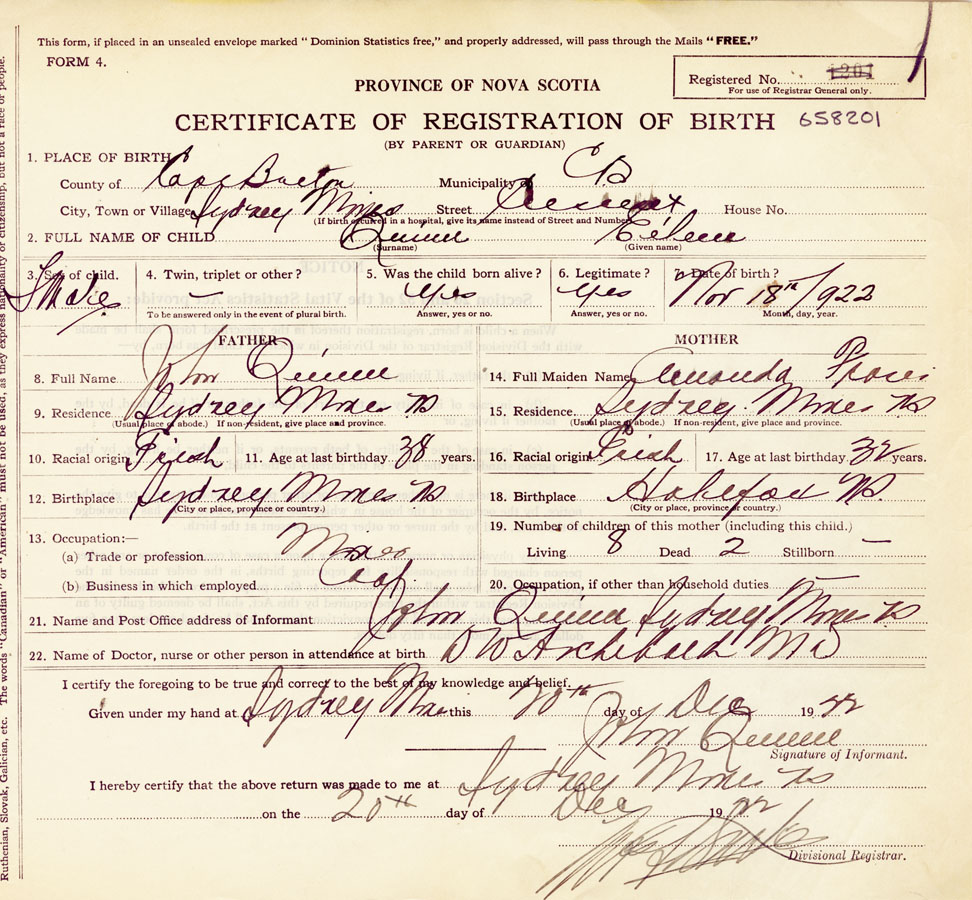 This form, if placed in an unsealed envelope marked "Dominion Statistics free," and properly addressed, will pass through the Mails "FREE."
FORM 4.
Registered No. 1201
For use of Registrar General only.
PROVINCE OF NOVA SCOTIA
CERTIFICATE OF REGISTRATION OF BIRTH 658201
(BY PARENT OR GUARDIAN)
1. PLACE OF BIRTH
County of Cape Breton Municipality of C B
City, Town or Village Sydney Mines Street Crescent House No.
(If birth occurred in a hospital, give its name instead of Street and Number)
2. FULL NAME OF CHILD Quinn Eileen
(Surname) (Given name)
3. Sex of child. 4. Twin, triplet or other? 5. Was the child born alive? 6. Legitimate? 7. Date of birth?
— Yes Yes Nov 18th/1922
To be answered only in the event of plural birth. Answer, yes or no. Answer, yes or no. Month, day, year.
FATHER MOTHER
8. Full Name John Quinn 14. Full Maiden Name Amanda
9. Residence Sydney Mines NS 15. Residence. Sydney Mines NS
(Usual place of abode.) If non-resident, give place and province. (Usual place of abode.) If non-resident, give place and province.
10. Racial origin Irish 11. Age at last birthday 38 years. 16. Racial origin Irish 17. Age at last birthday 32 years.
12. Birthplace Sydney Mines NS 18. Birthplace Halifax NS
(City or place, province or country.) (City or place, province or country.)
13. Occupation:— 19. Number of children of this mother (including this child.)
(a) Trade or profession Miner Living 8 Dead 2 Stillborn —
(b) Business in which employed Coal 20. Occupation, if other than household duties —
21. Name and Post Office address of Informant John Quinn Sydney Mines NS
22. Name of Doctor, nurse or other person in attendance at birth D W Archibald MD
I certify the foregoing to be true and correct to the best of my knowledge and belief.
Given under my hand at Sydney Mines this 20th day of Dec 1922
John Quinn
Signature of Informant.
I hereby certify that the above return was made to me at Sydney Mines NS
on the 20th day of Dec 1922
Divisional Registrar.
Ruthenian, Slovak, Galician, etc. The words "Canadian" or "American" must not be used, as they express nationality or citizenship, but not a race or people.